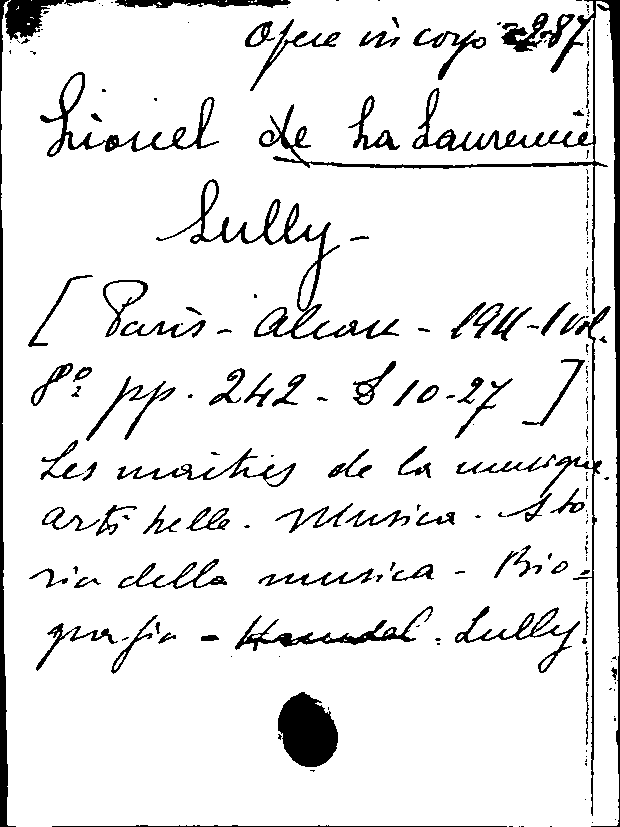 Opere in corso 287
Lionel de La Laurencie
Lully -
[ Paris - Alcan - 1911 - 1 vol.
8º pp. 242 - S 10-27 ]
Les maîtres de la musique.
Arti belle. Musica. Sto
ria della musica - Bio=
grafia - Haendel. Lully.